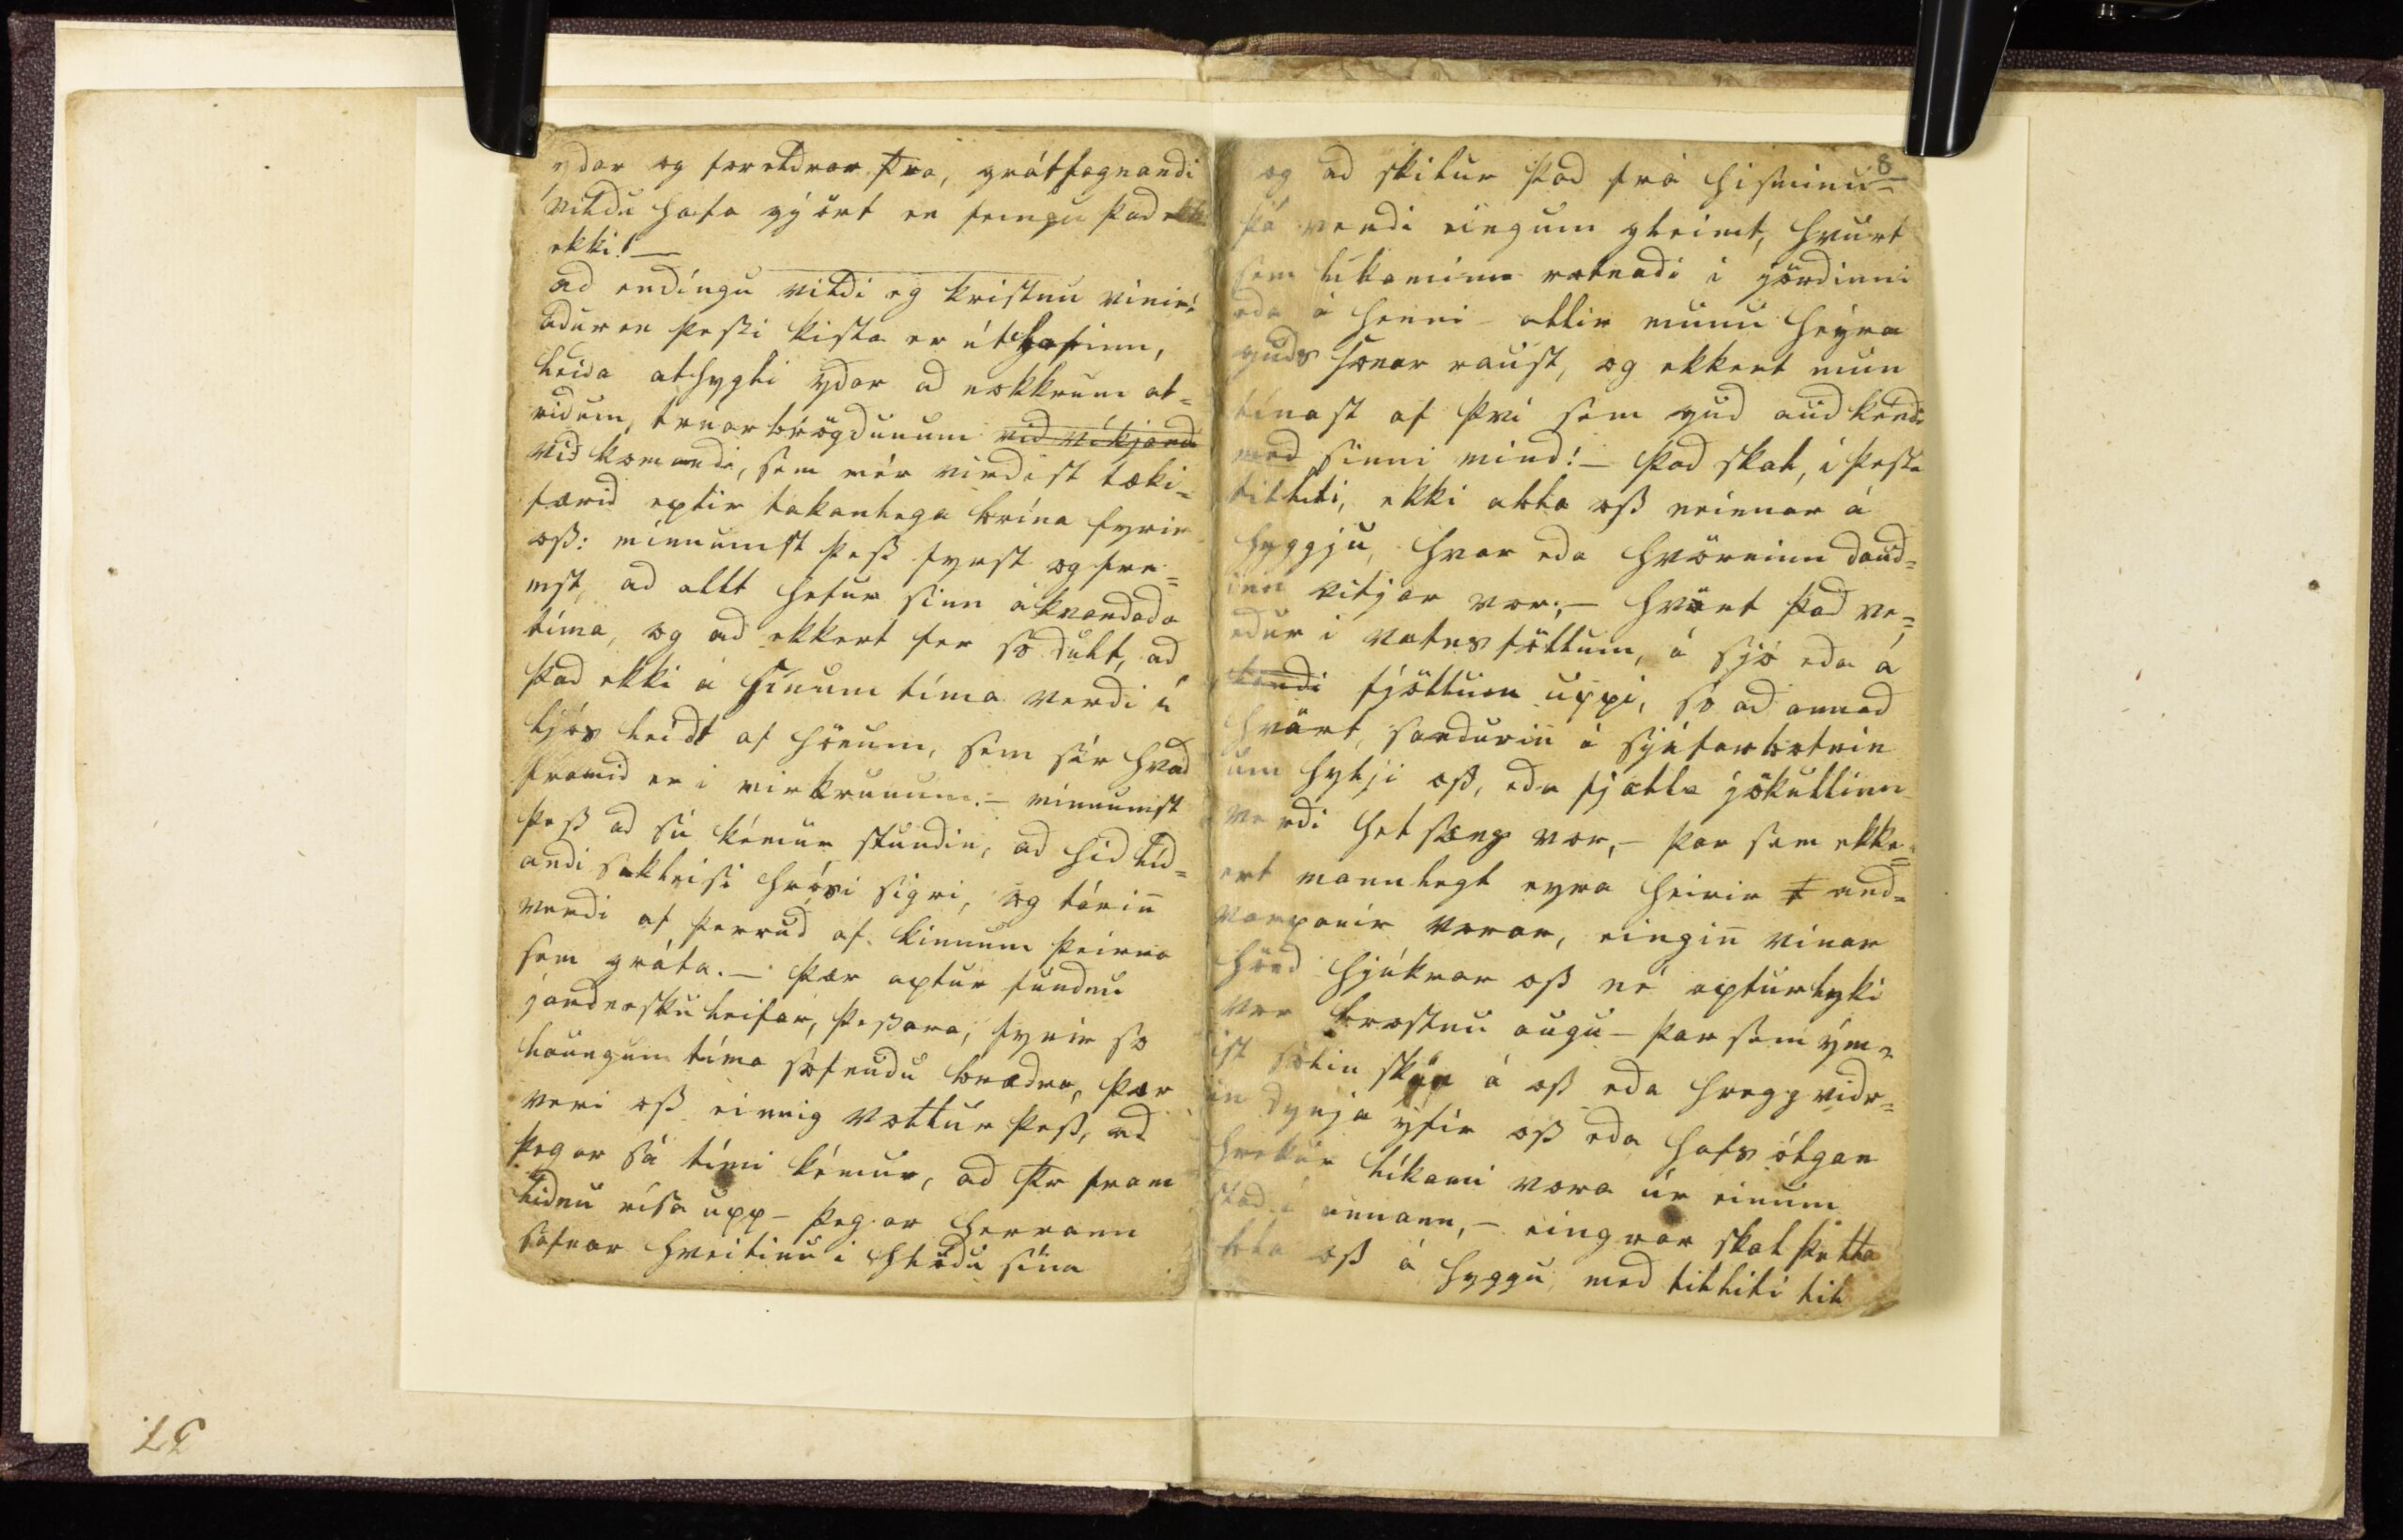 ydar og foreldrar þra, grátfagnandi
vildu hafa gjört en feingu þad ekki
ekki! —
ad endíngu vildi eg kristnu vinir!
adur en þessi kista er úthafinn,
leida athygli ydar ad nokkrum at=
ridum, trúarbrögdunum vid víkjandi
vid komandi, sem mér virdist tæki=
færid eptir takanlega brína fyrir
oß: minnumst þeß fyrst og fre=
mst, ad allt hefur sinn ákvardada
tíma, og ad ekkert fer so dult, ad
þad ekki á sínum tíma verdi í
ljós leidt af hönum, sem sér hvad
framid er i mirkrunum. — minnumst
þeß ad sú kémur stundin, ad hid líd=
andi sakleisi hrósi sigri, og tárin
verdi af þerrud af kinnum þeirra
sem gráta. — þær aptur fundnu
jardnesku leifar, þeßara, fyrir so
laungum tíma sofnudu brædra, þær
veri oß einnig vottur þeß, ad
þegar sá tími kémur, ad þr fram
lidnu rísa upp — þegar herrann
safnar hveitinu i hlödu sína
8
og ad skilur þad frá hisminu —
þá verdi eingum gleimt, hvurt
sem likaminn rotnadi i jördinni
eda á henni — allir munu heýra
guds sonar raust, og ekkert mun
tínast af því sem gud audkéndi
med sinni mind! — þad skal, i þessu
tilliti, ekki alla oß neinnar á
hyggju, hvar eda hvörninn daud=
inn vitjar vor; — hvört þad ve=
rdur i vatnsföllum, á sjó eda á
landi fjöllum uppi, so ad annad
hvört, sandurin á sjáfarbotnin
um hylji oß, eda fjalla jökullinn
verdi hel sæng vor, — þar sem ekke=
ert mannlegt eyra heirir t and=
varpanir vorar, eingin vinar
hönd hjúkrar oß né apturlyki
vor brostnu augu — þar sem ým=
ist sólin skýn á oß eda hreggvidr=
in dynja yfir oß eda hafs ólgan
hrekur líkami vora úr einum
stad í annann, — eingvar skal þetta
bla oß á hyggu, med tilliti til
37.